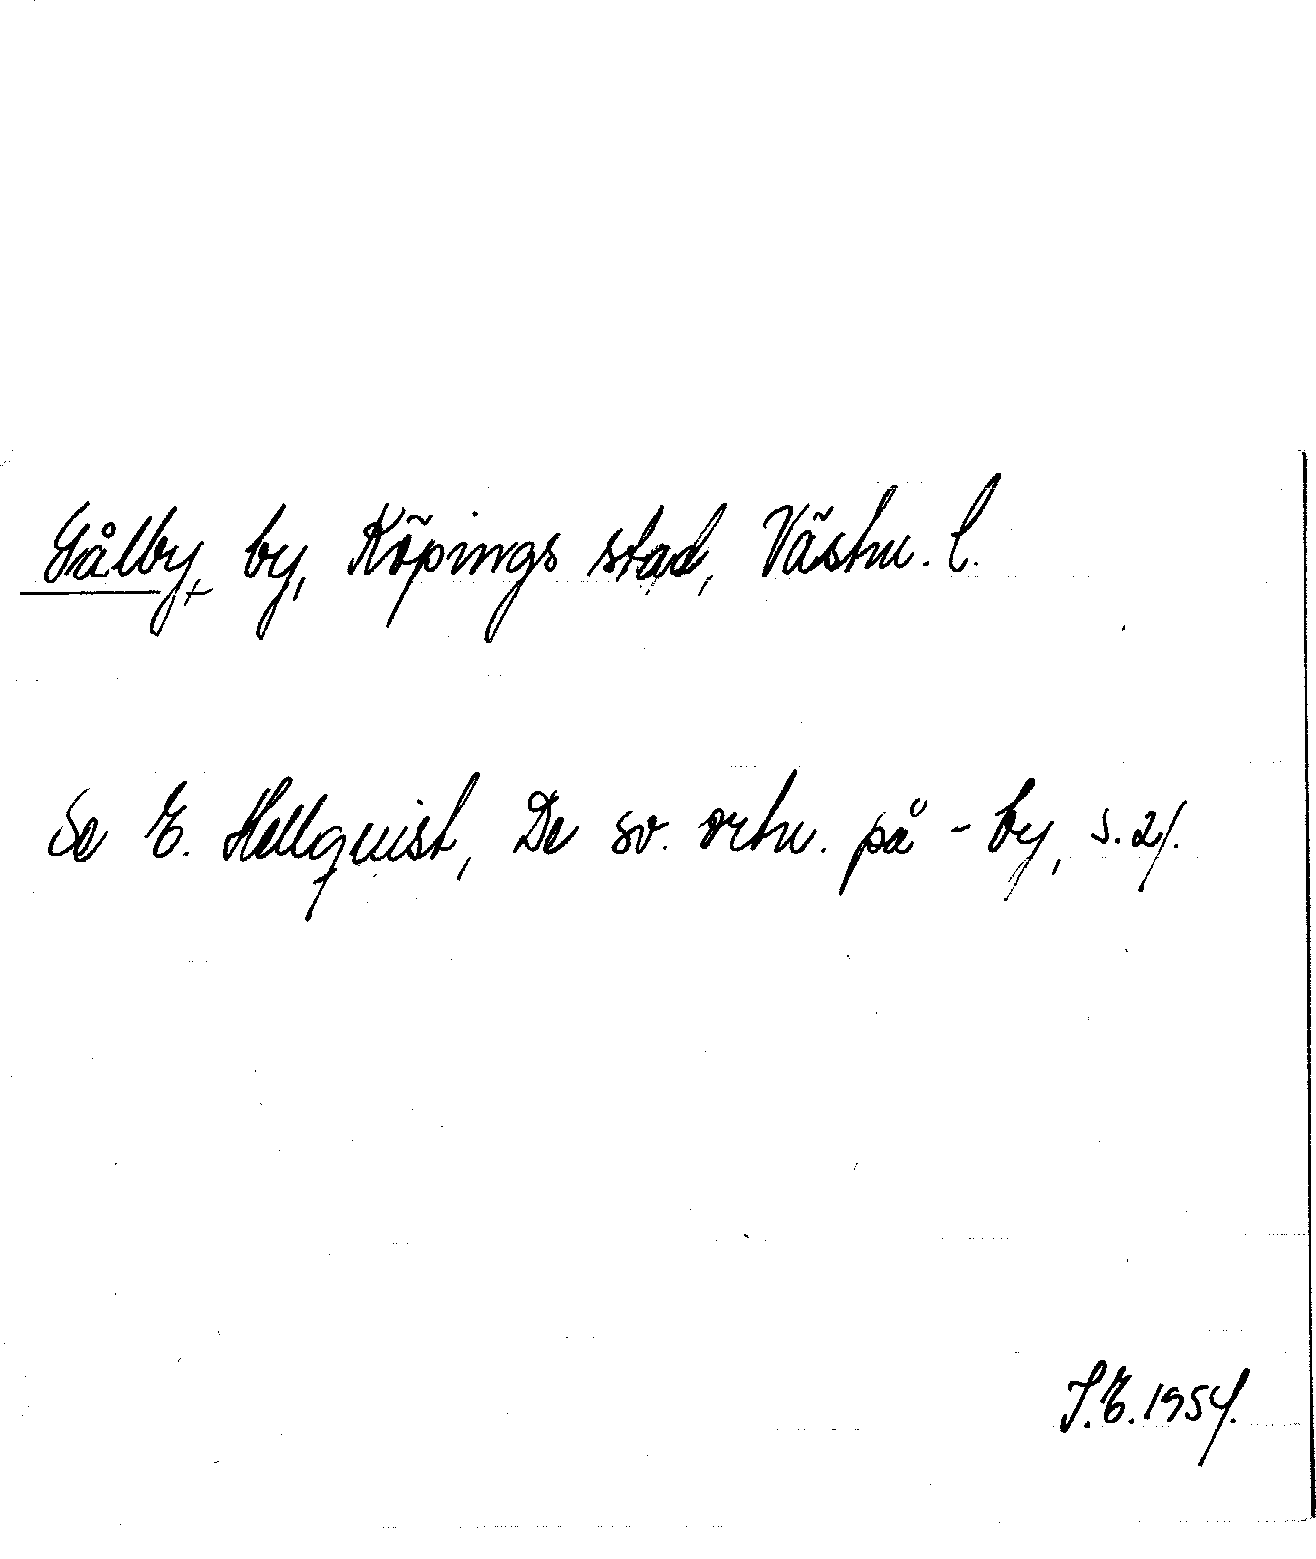 Gålby, by, Köpings stad, Västm. l.
Se E. Hellquist, De sv. ortn. på -by, s. 21.
I.E. 1954.